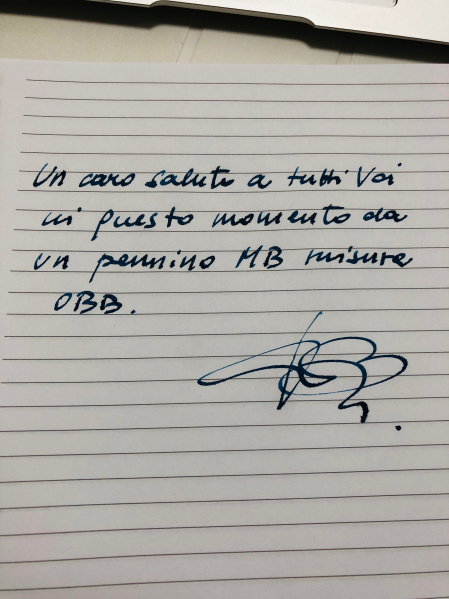 Un caro saluto a tutti Voi
in questo momento da
un pennino MB misura
OBB.